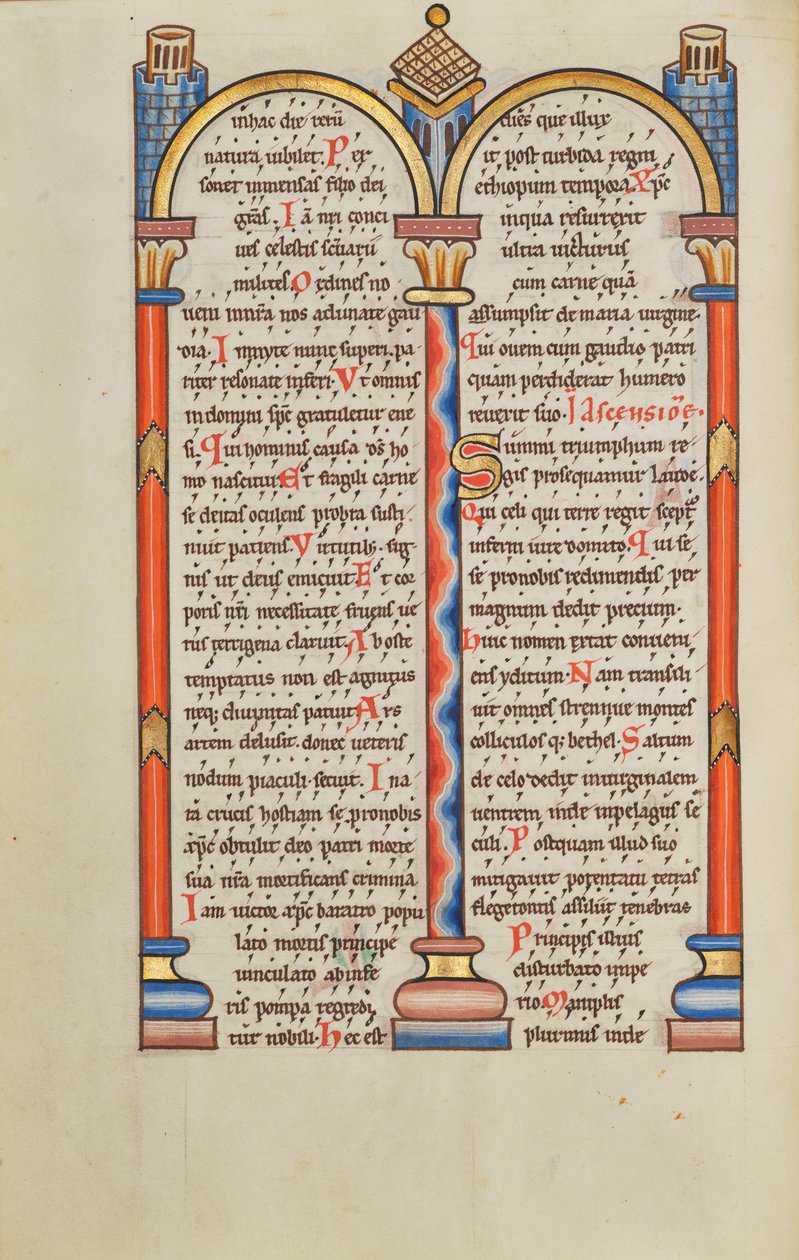 inhac die rerū
natura iubilet. Per
sonet inmensas filio dei
grās. Iā nri conci
ues celestis scuarū
milites Ordines no
ueni innrā nos adunate gau
dia. Innyte nunc superi. pa
riter resonate inferi. Vt omnis
in domini spc gratuletur ene
si. Qui hominis causa ds ho
mo nascitur Et fragili carne
se deitas oculens probra susti
nuit patiens. Virtutibꝫ. sig
nis ut deus emicuit Et cor
poris nrī necessitate fruens ue
rus terrigena claruit. Ab oste
temptatus non est agnitus
neqꝫ diuinitas patuit Ars
artem delusit. donec ueteris
nodum piaculi. secuit. In a
rā crucis hostiam se pronobis
xpc obtulit deo patri morte
sua nrā mortificans crimina
Iam uictor xpc baratro popu
lato mortis principe
uinculato abinfe
ris pompa regredi
tur nobili. Hec est
dies que illux
it post turbida regni
ethiopum tempora Xpc
inqua resurexit
ultra uicturus
cum carne quā
assumpsit de maria uirgine.
Qui ouem cum gaudio patri
quam perdiderat humero
reuexit suo. In Ascensiōe.
Summi triumphum re
gis prosequamur laude.
Qui celi qui terre regit sceptᵃ
inferni iure domito. Qui se
se pronobis redimendis per
magnum dedit precium.
Huic nomen extat conueni
ens yditum. Nam transili
uit omnes strennue montes
colliculos qꝫ bethel. Saltum
de celo dedit inuirginalem
uentrem inde inpelagus se
culi. Postquam illud suo
mitigauit potentatu tetras
flegetontis assiliit tenebras
Principis illius
disturbato impe
rio. Maniplis
plurimis inde